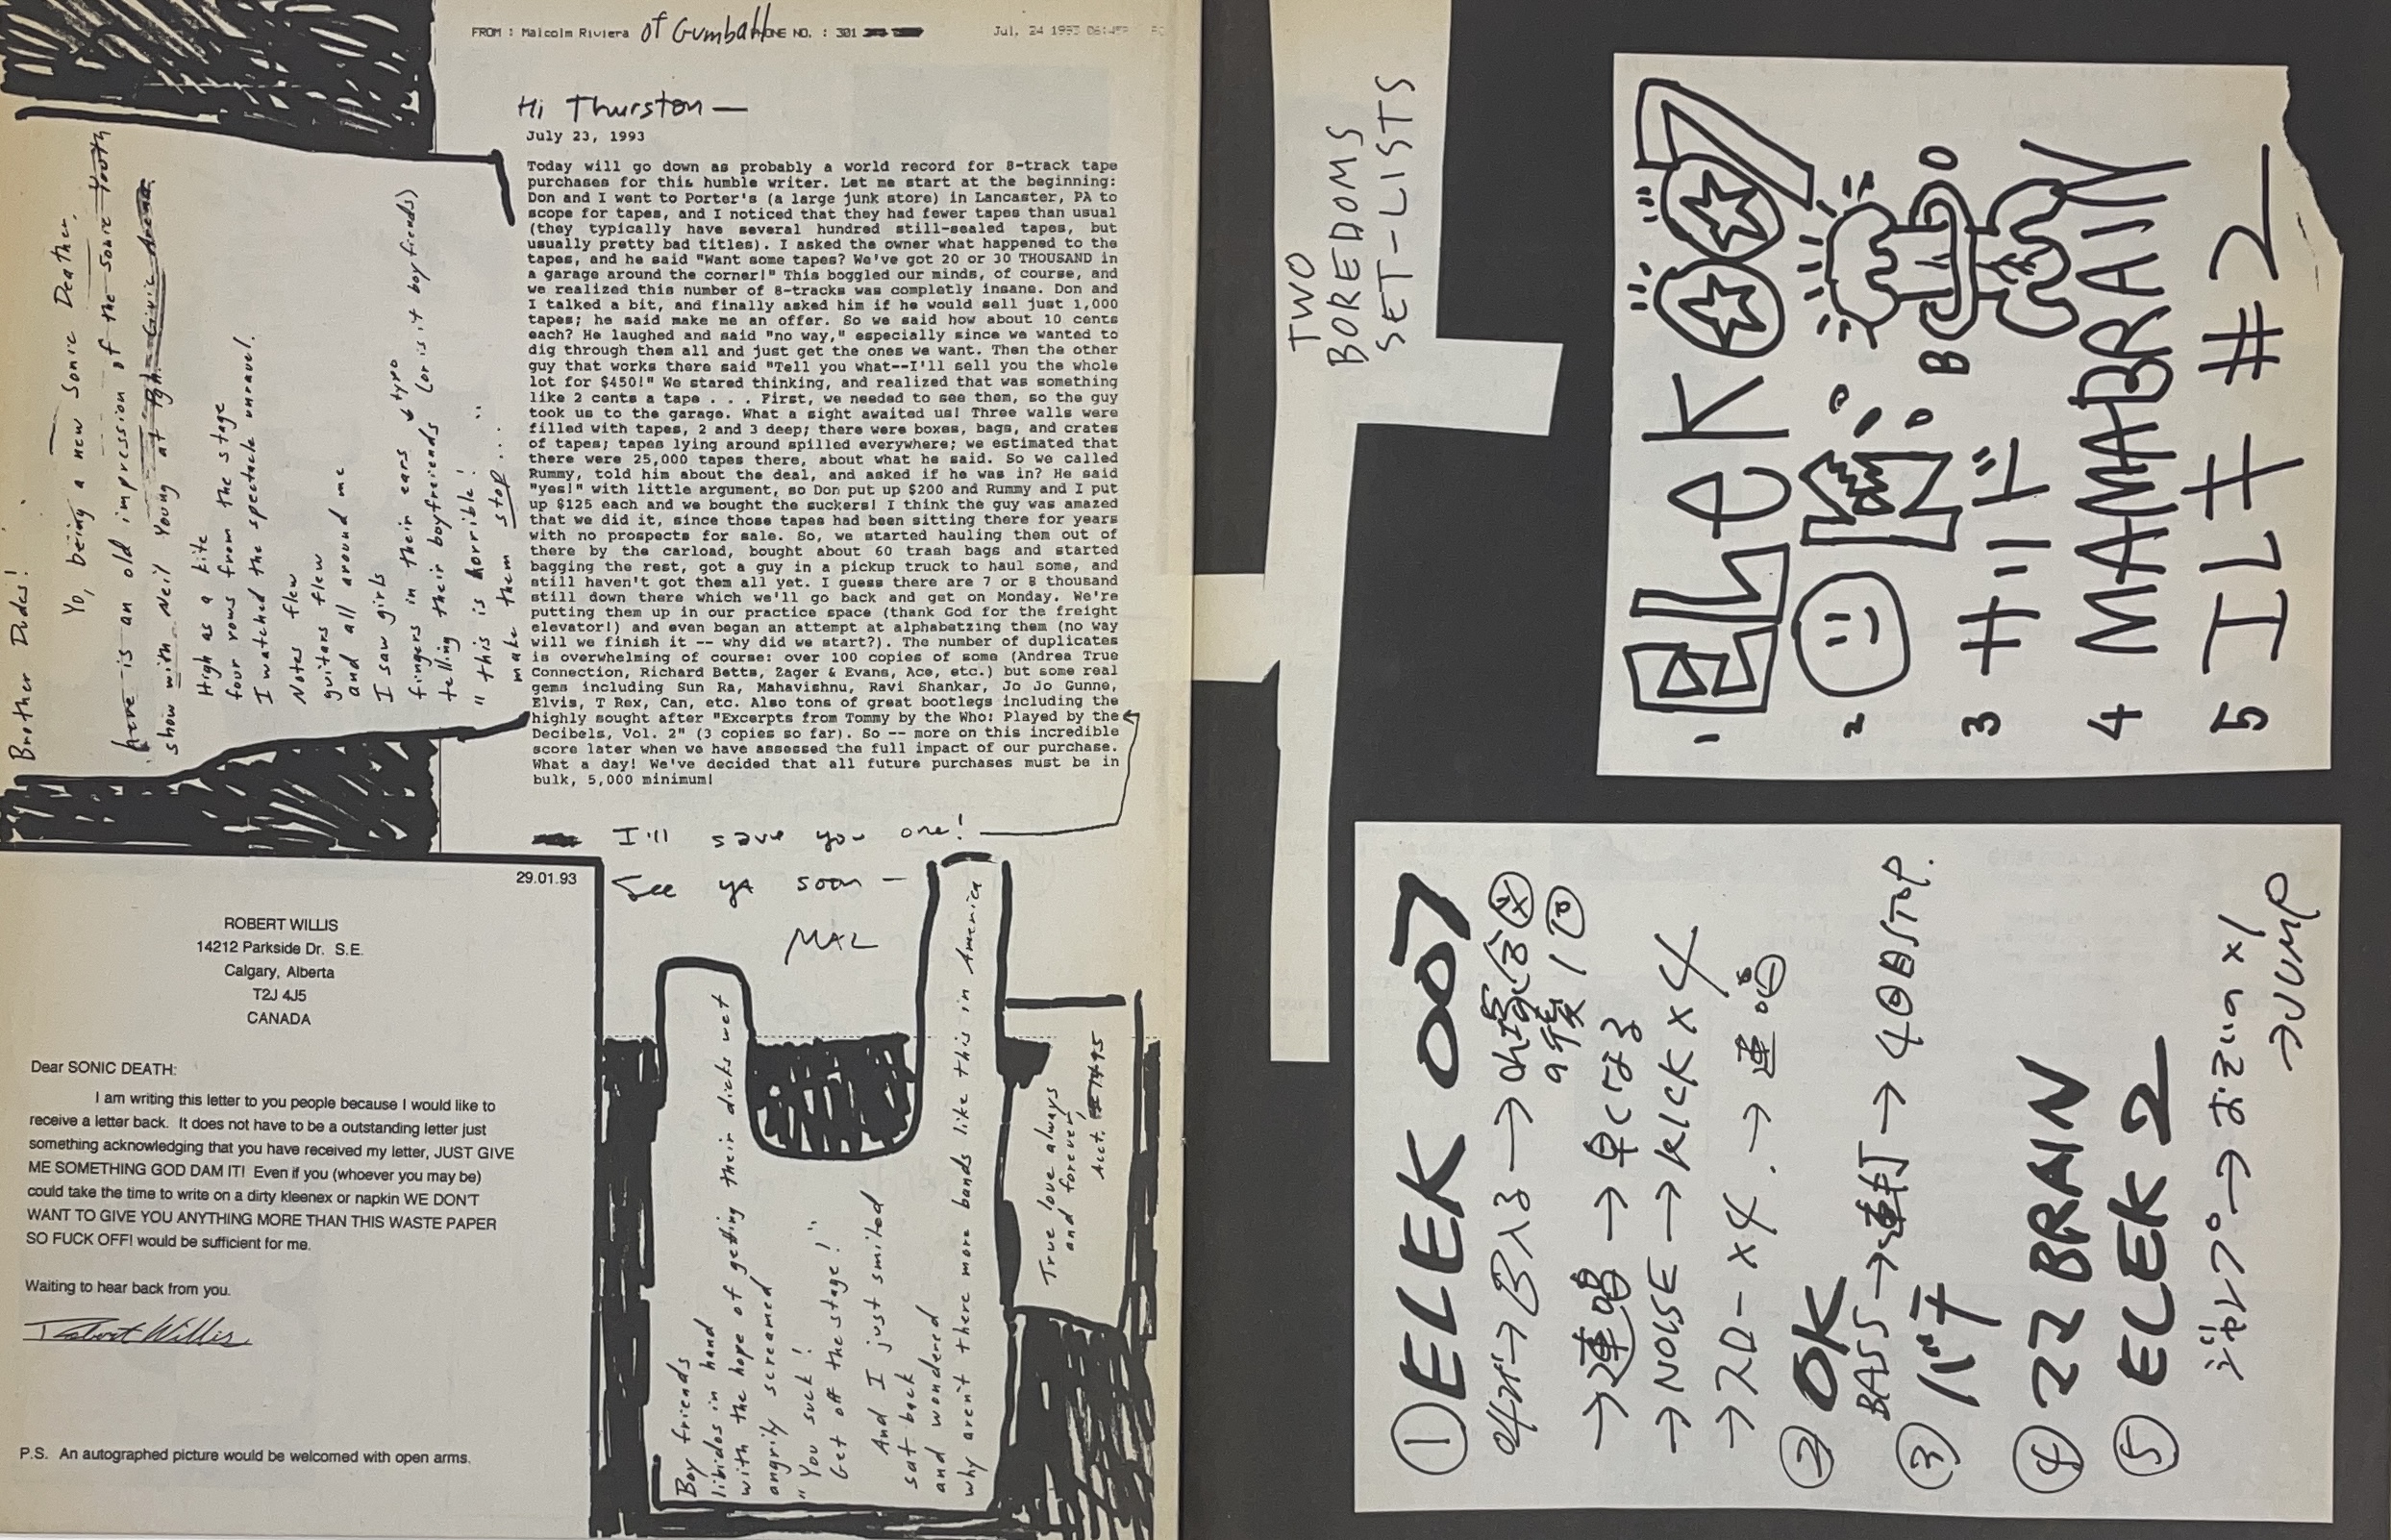 FROM : Malcolm Riviera of Gumball PHONE NO. : 301
Jul. 24 1993 06:45P
Hi Thurston —
July 23, 1993
Today will go down as probably a world record for 8-track tape
purchases for this humble writer. Let me start at the beginning:
Don and I went to Porter's (a large junk store) in Lancaster, PA to
scope for tapes, and I noticed that they had fewer tapes than usual
(they typically have several hundred still-sealed tapes, but
usually pretty bad titles). I asked the owner what happened to the
tapes, and he said "Want some tapes? We've got 20 or 30 THOUSAND in
a garage around the corner!" This boggled our minds, of course, and
we realized this number of 8-tracks was completly insane. Don and
I talked a bit, and finally asked him if he would sell just 1,000
tapes; he said make me an offer. So we said how about 10 cents
each? He laughed and said "no way," especially since we wanted to
dig through them all and just get the ones we want. Then the other
guy that works there said "Tell you what--I'll sell you the whole
lot for $450!" We stared thinking, and realized that was something
like 2 cents a tape . . . First, we needed to see them, so the guy
took us to the garage. What a sight awaited us! Three walls were
filled with tapes, 2 and 3 deep; there were boxes, bags, and crates
of tapes; tapes lying around spilled everywhere; we estimated that
there were 25,000 tapes there, about what he said. So we called
Rummy, told him about the deal, and asked if he was in? He said
"yes!" with little argument, so Don put up $200 and Rummy and I put
up $125 each and we bought the suckers! I think the guy was amazed
that we did it, since those tapes had been sitting there for years
with no prospects for sale. So, we started hauling them out of
there by the carload, bought about 60 trash bags and started
bagging the rest, got a guy in a pickup truck to haul some, and
still haven't got them all yet. I guess there are 7 or 8 thousand
still down there which we'll go back and get on Monday. We're
putting them up in our practice space (thank God for the freight
elevator!) and even began an attempt at alphabetzing them (no way
will we finish it -- why did we start?). The number of duplicates
is overwhelming of course: over 100 copies of some (Andrea True
Connection, Richard Betts, Zager & Evans, Ace, etc.) but some real
gems including Sun Ra, Mahavishnu, Ravi Shankar, Jo Jo Gunne,
Elvis, T Rex, Can, etc. Also tons of great bootlegs including the
highly sought after "Excerpts from Tommy by the Who: Played by the
Decibels, Vol. 2" (3 copies so far). So -- more on this incredible
score later when we have assessed the full impact of our purchase.
What a day! We've decided that all future purchases must be in
bulk, 5,000 minimum!
I'll save you one!
See ya soon —
MAL
Brother Dudes!
Yo, being a new Sonic Death,
here is an old impression of the Sonic Youth
show with Neil Young at Pgh. Civic Arena
High as a kite
four rows from the stage
I watched the spectacle unravel.
Notes flew
guitars flew
and all around me
I saw girls
fingers in their ears
typo
telling their boyfreiends (or is it boyfiends)
"this is horrible!
make them stop..."
Boy friends
libidos in hand
with the hope of getting their dicks wet
angrily screamed
"You suck!
Get off the stage!"
And I just smiled
sat back
and wondered
why aren't there more bands like this in America
True love always
and forever,
Acct. 7495
29.01.93
ROBERT WILLIS
14212 Parkside Dr. S.E.
Calgary, Alberta
T2J 4J5
CANADA
Dear SONIC DEATH:
I am writing this letter to you people because I would like to
receive a letter back. It does not have to be a outstanding letter just
something acknowledging that you have received my letter, JUST GIVE
ME SOMETHING GOD DAM IT! Even if you (whoever you may be)
could take the time to write on a dirty kleenex or napkin WE DON'T
WANT TO GIVE YOU ANYTHING MORE THAN THIS WASTE PAPER
SO FUCK OFF! would be sufficient for me.
Waiting to hear back from you.
Robert Willis
P.S. An autographed picture would be welcomed with open arms.
TWO
BOREDOMS
SET-LISTS
1 ELeK 007
2
B O
3 #リド
4 MAMABRAIN
5 エレキ #2
① ELEK 007
→ 連唱 → 単になる
→ NOISE → KICK x 4
→ スロー x4. → 連唱
② OK
BASS → 連打 → 4回目STOP.
③ バチ
④ ママ BRAIN
⑤ ELEK 2
ジャンプ → おそいの x1
→ JUMP